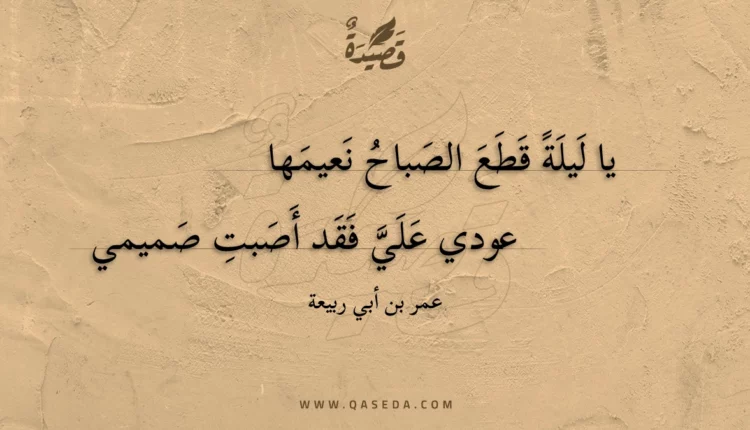 قَصِيدَةٌ
يا لَيلَةً قَطَعَ الصَباحُ نَعيمَها
عودي عَلَيَّ فَقَد أَصَبتِ صَميمي
عمر بن أبي ربيعة
WWW.QASEDA.COM